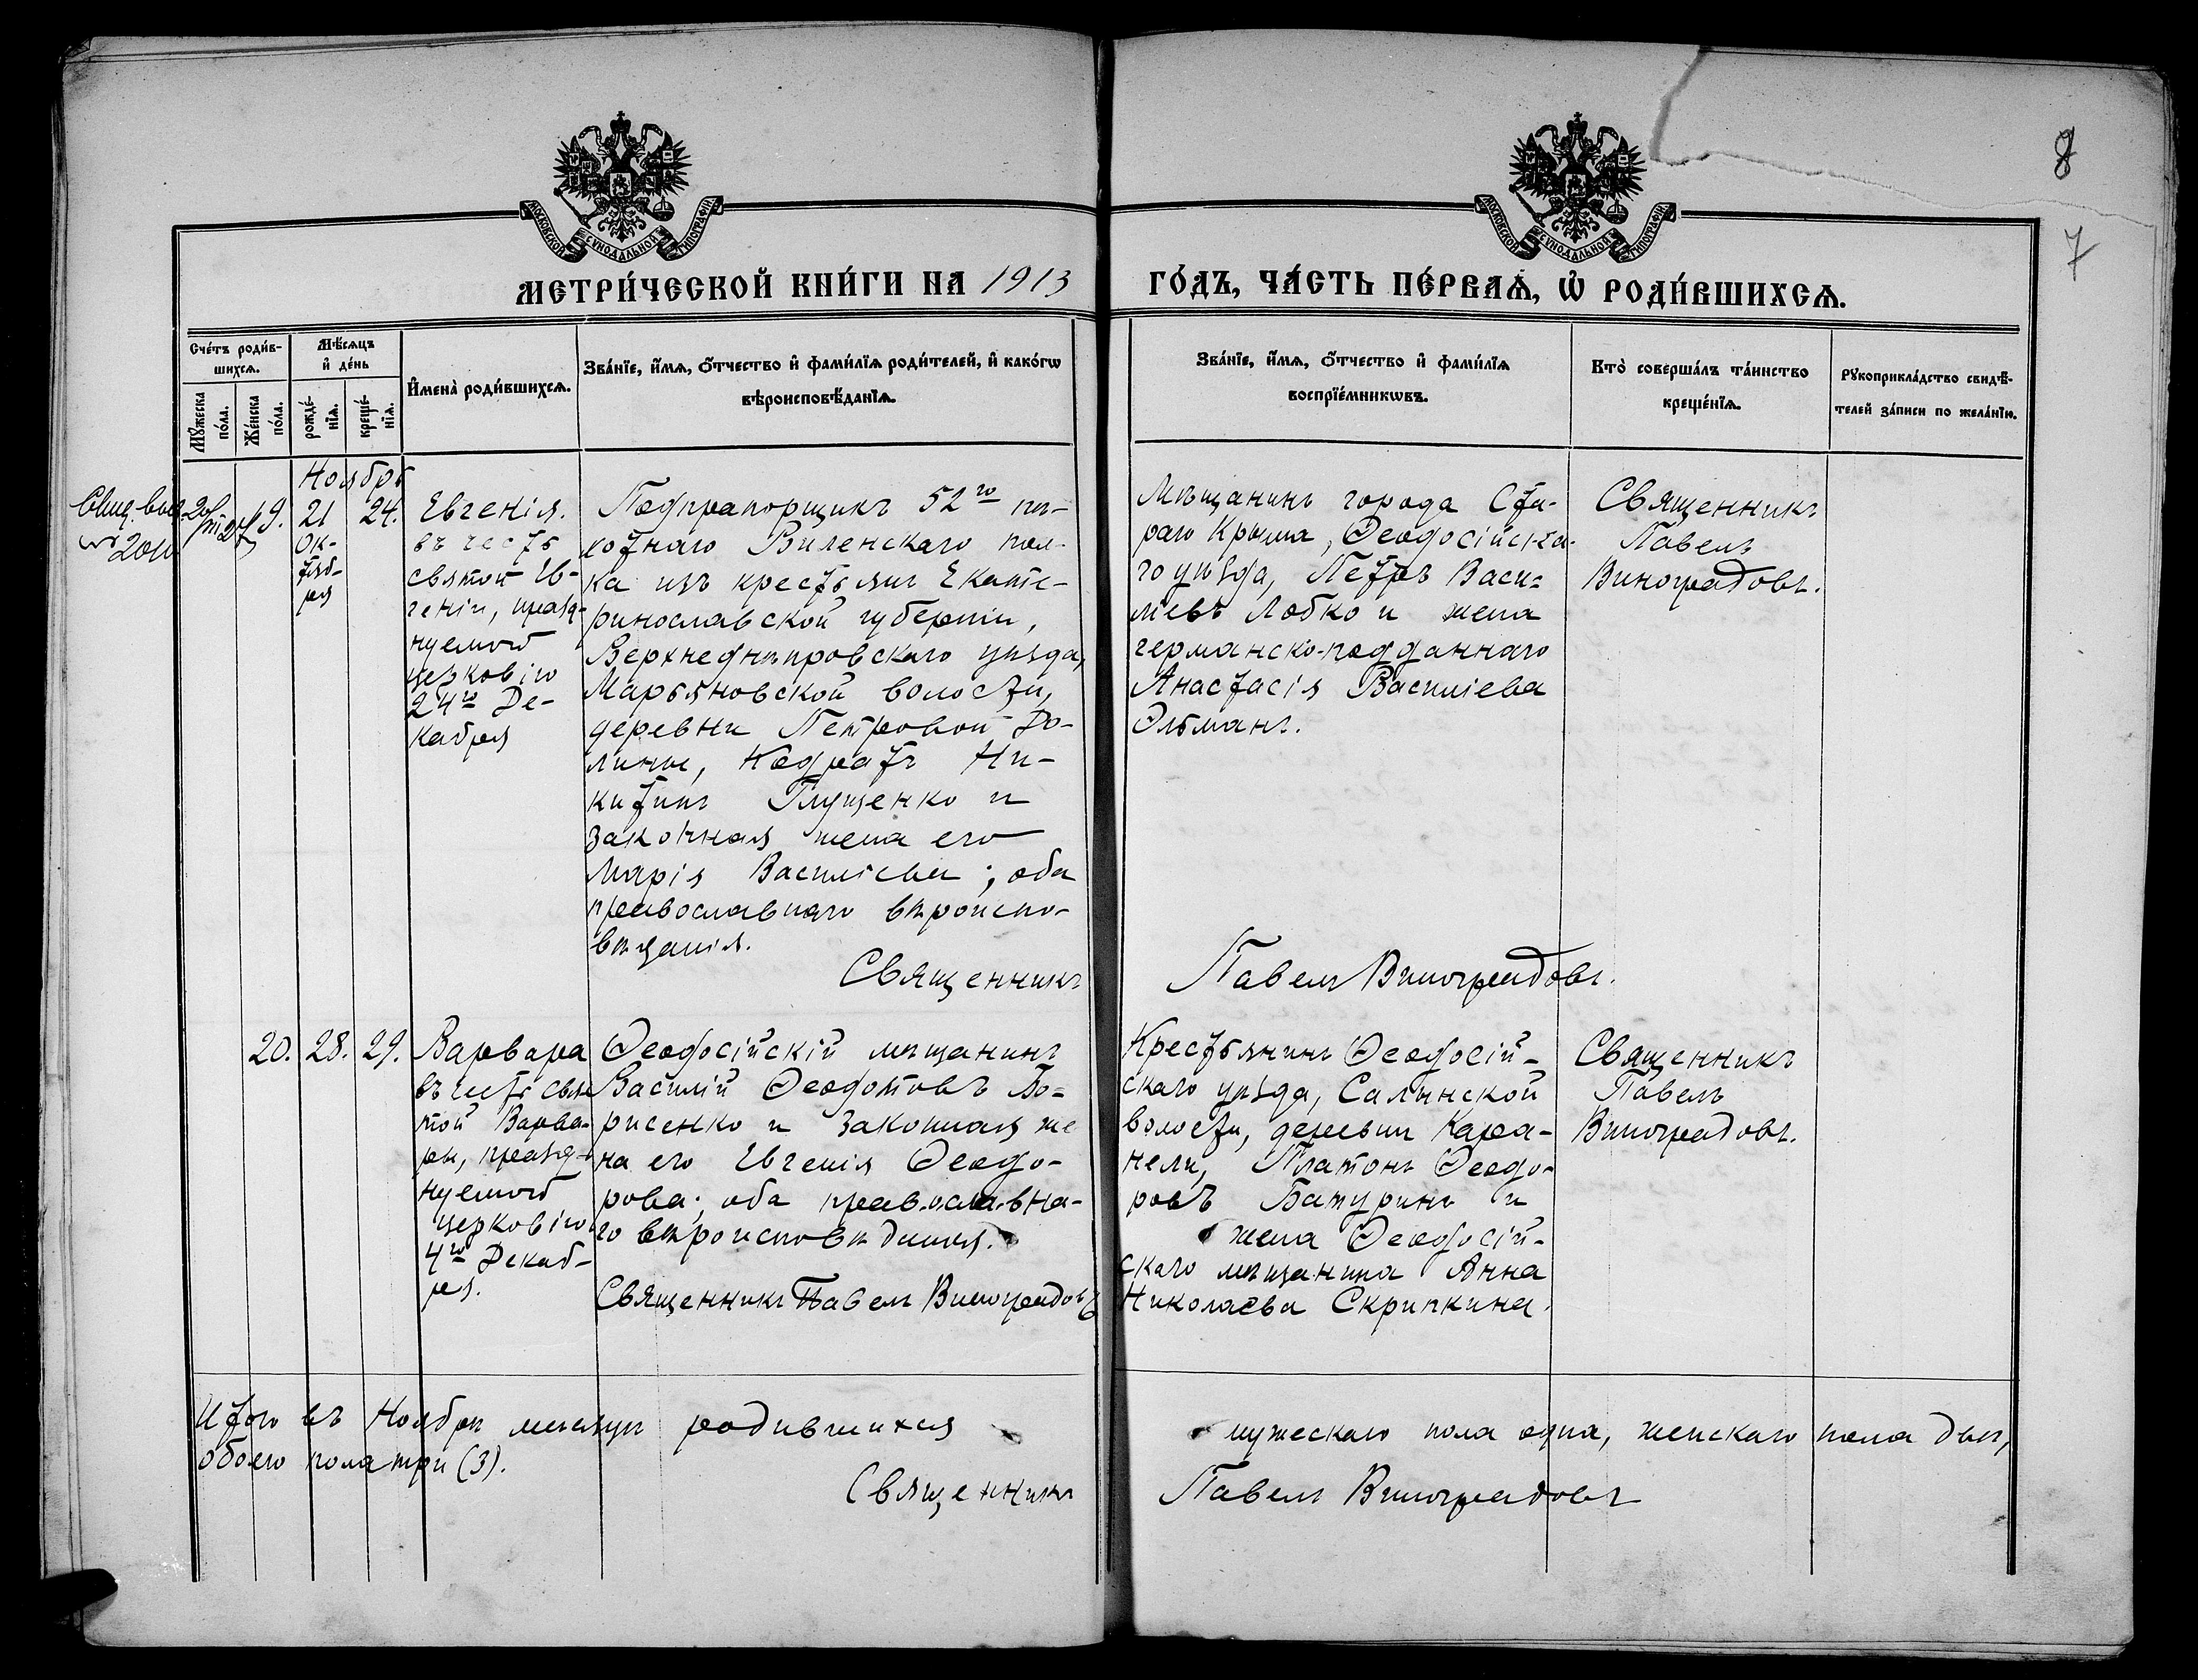 8
7
МОСКОВСКОЙ СѴНОДАЛЬНОЙ ТИПОГРАФІИ
МОСКОВСКОЙ СѴНОДАЛЬНОЙ ТИПОГРАФІИ
МЕТРИ́ЧЕСКОЙ КНИ́ГИ НА 1913 ГО́ДЪ, ЧА́СТЬ ПЕ́РВАѦ, Ѡ҆ РОДИ́ВШИХСѦ.
Сче́тъ роди́в-
шихсѧ.
Мꙋ́жеска
по́ла.
Же́нска
по́ла.
Мѣ́сѧцъ
и҆ де́нь
рожде́-
нїѧ.
креще́-
нїѧ.
И҆мена̀ роди́вшихсѧ.
Зва́нїе, и҆́мѧ, ѻ҆́тчество и҆ фами́лїѧ роди́телей, и҆ како́гѡ
вѣроисповѣ́данїѧ.
Зва́нїе, и҆́мѧ, ѻ҆́тчество и҆ фами́лїѧ
воспрїе́мникѡвъ.
Кто̀ соверша́лъ та́инство
креще́нїѧ.
Рꙋкоприкла́дство свидѣ́-
телей за́писи по жела́нїю.
Ноябрь
19. 21 24.
Ок-
тяб-
ря
Евгенія.
въ честь
святой Ев-
геніи, празд-
нуемой
церковію
24го Де-
кабря
Подпрапорщикъ 52го пѣ-
хотнаго Виленскаго пол-
ка изъ крестьянъ Екате-
ринославской губерніи,
Верхнеднѣпровскаго уѣзда,
Марьяновской волости,
деревни Петровой До-
лины, Кодратъ Ни-
китинъ Глущенко и
законная жена его
Марія Василіева; оба
православнаго вѣроиспо-
вѣданія.
Священникъ Павелъ Виноградовъ.
Мѣщанинъ города Ста-
раго Крыма, Ѳеодосійска-
го уѣзда, Петръ Васи-
ліевъ Лобко и жена
германско-подданнаго
Анастасія Василіева
Эльманъ.
Священникъ
Павелъ
Виноградовъ.
20. 28. 29.
Варвара
въ честь свя-
той Варва-
ры, празд-
нуемой
церковію
4го Декаб-
ря.
Ѳеодосійскій мѣщанинъ
Василій Ѳеодотовъ Бо-
рисенко и законная же
на его Евгенія Ѳеодо-
рова; оба православна-
го вѣроисповѣданія.
Священникъ Павелъ Виноградовъ
Крестьянинъ Ѳеодосій-
скаго уѣзда, Салынской
волости, деревни Кара-
нели, Платонъ Ѳеодо-
ровъ Батуринъ и
жена Ѳеодосій-
скаго мѣщанина Анна
Николаева Скрипкина.
Священникъ
Павелъ
Виноградовъ.
Итого въ Ноябрѣ мѣсяцѣ родившихся мужескаго пола одна, женскаго пола двѣ,
обоего пола три (3).
Священникъ Павелъ Виноградовъ